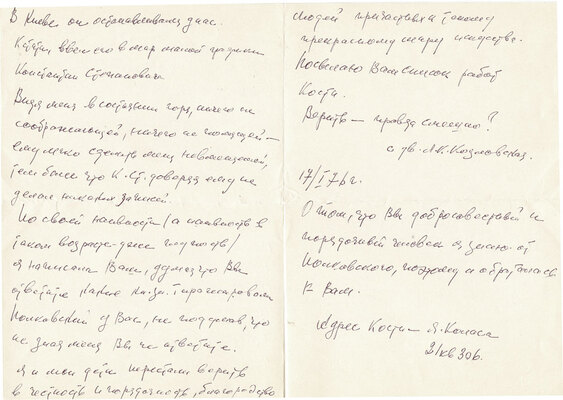 В Киеве он останавливался у нас.
Кстати ввел его в мир малой графики
Константин Степанович
Видя меня в состоянии горя, ничего не
соображающей, ничего не помнящей –
ему легко сделать меня невменяемой,
тем более что К. Ст. доверял ему не
делал никаких записей.
По своей наивности /а наивность в
таком возрасте – даже глупость/
я написала Вам, думая, что Вы
ответите какие кн. зн. тиражировали
у Вас, не подумав, что
не зная меня Вы не ответите.
Я и мои дети перестали верить
в честность и порядочность, благородство
людей причастных к такому
прекрасному миру искусства.
Посылаю Вам список работ
Кости.
Верить – правда смешно?
с ув. А.К. Козловская.
17/I 76 г.
О том, что Вы добросовестный и
порядочный человек я знаю от
поэтому и обратилась
к Вам.
Адрес Кости – Я. Коласа
кв 306.